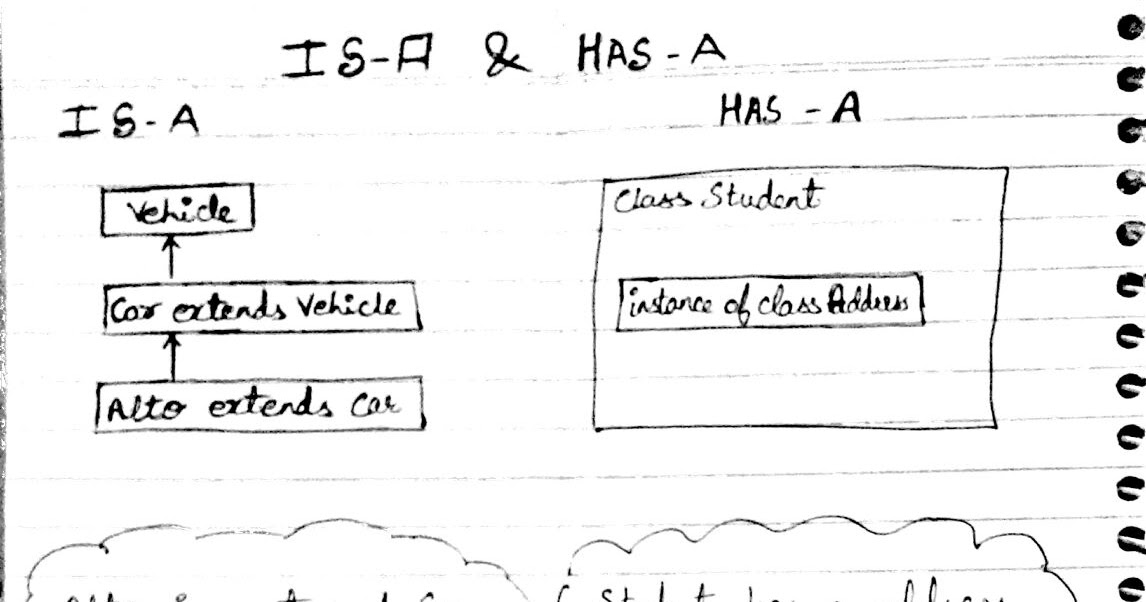 IS-A & HAS-A
IS-A
Vehicle
Car extends Vehicle
Alto extends Car
HAS-A
Class Student
instance of class Address